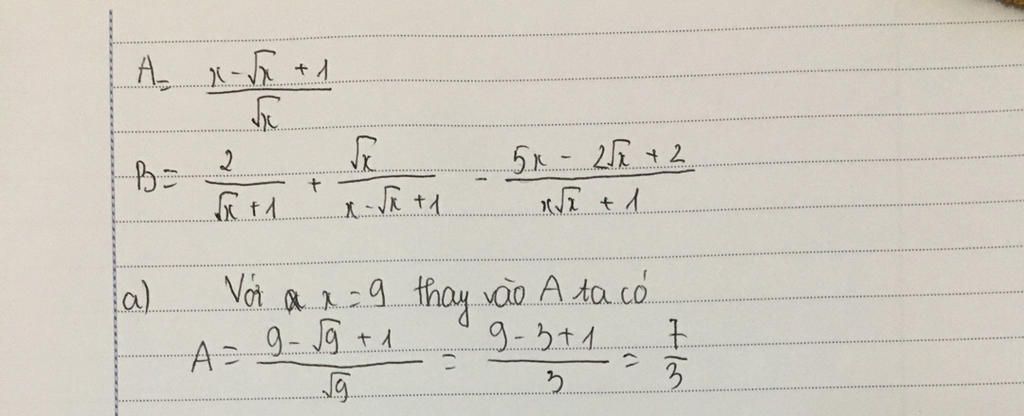 A = (x - √x + 1)/√x
B = 2/(√x + 1) + √x/(x - √x + 1) - (5x - 2√x + 2)/(x√x + 1)
a) Với x = 9 thay vào A ta có
A = (9 - √9 + 1)/√9 = (9 - 3 + 1)/3 = 7/3